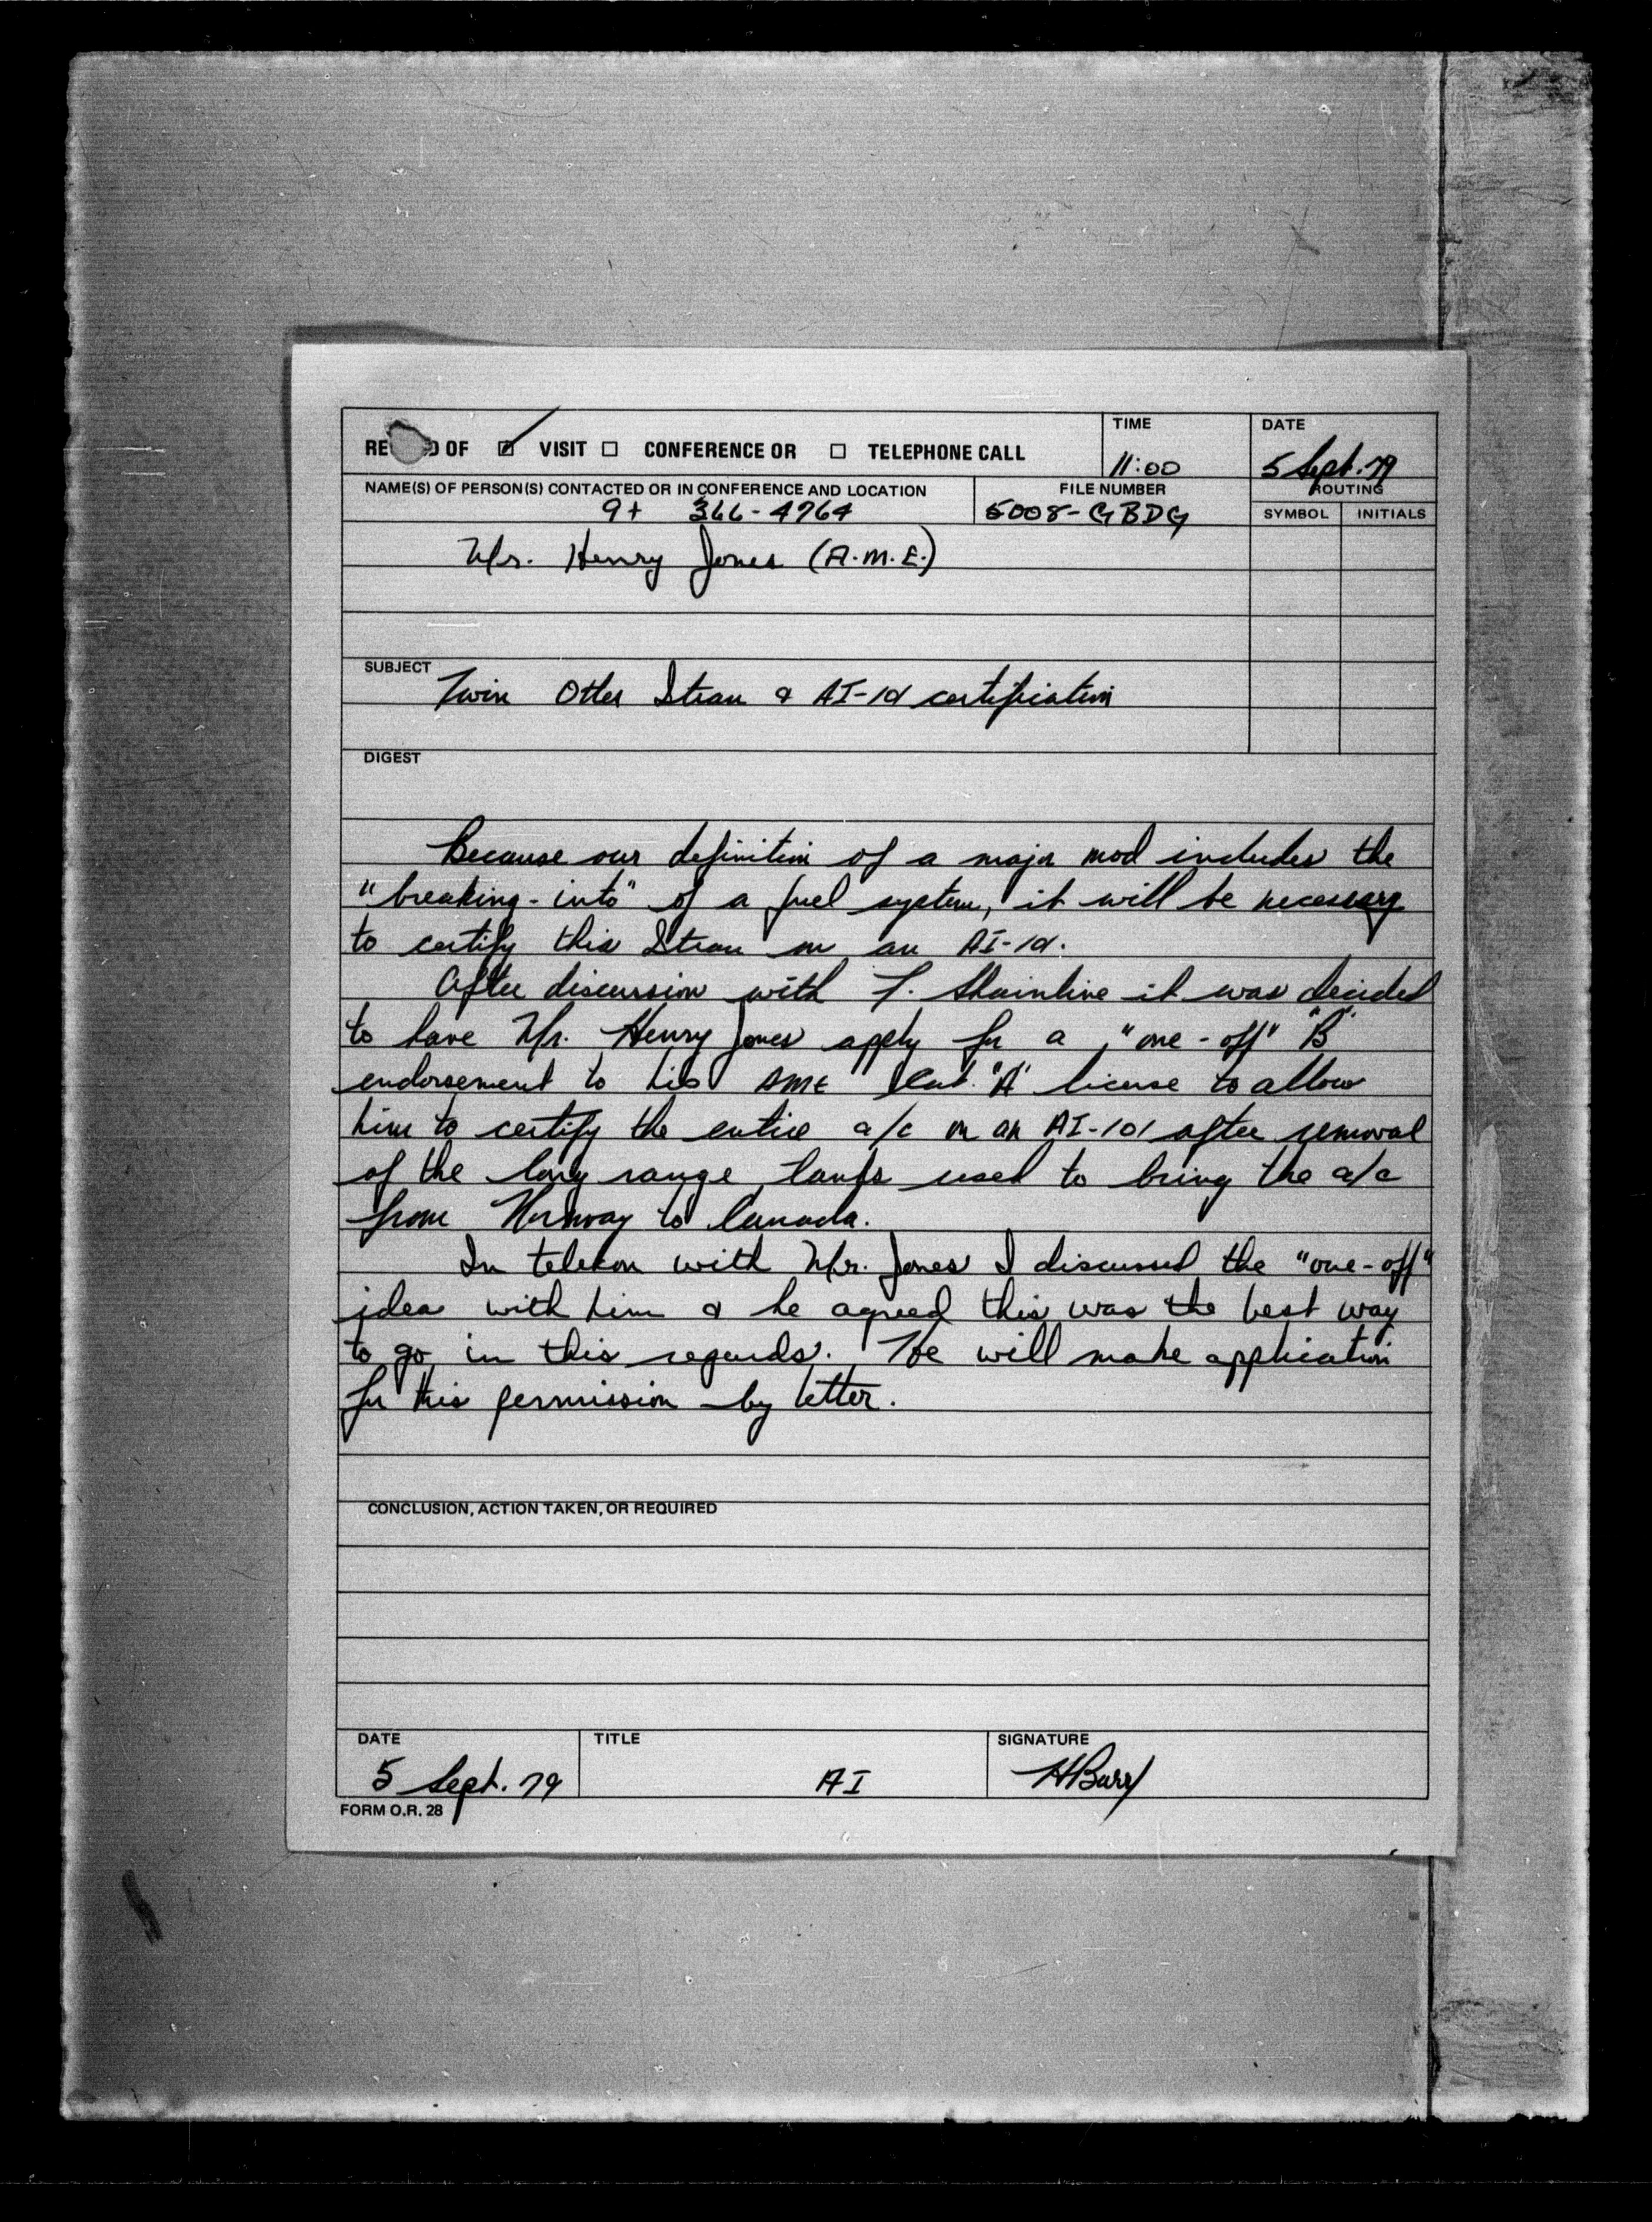 RE D OF VISIT CONFERENCE OR TELEPHONE CALL
TIME
11:00
DATE
5 Sept. 79
NAME(S) OF PERSON(S) CONTACTED OR IN CONFERENCE AND LOCATION
9+ 366-4764
FILE NUMBER
5008-GBDG
ROUTING
SYMBOL INITIALS
Mr. Henry Jones (A.M.E.)
SUBJECT
Twin Otter & certification
DIGEST
Because our definition of a major mod includes the
"breaking-into" of a fuel system, it will be necessary
to certify this on an
After discussion with it was decided
to have Mr. Henry Jones apply for a "one-off" "B"
endorsement to his AME Cat. "A" license to allow
him to certify the entire a/c on an AI-101 after removal
of the long range tanks used to bring the a/c
from Norway to Canada.
In telekon with Mr. Jones I discussed the "one-off"
idea with him & he agreed this was the best way
to go in this regards. He will make application
for this permission by letter.
CONCLUSION, ACTION TAKEN, OR REQUIRED
DATE
5 Sept. 79
TITLE
AI
SIGNATURE
FORM O.R. 28